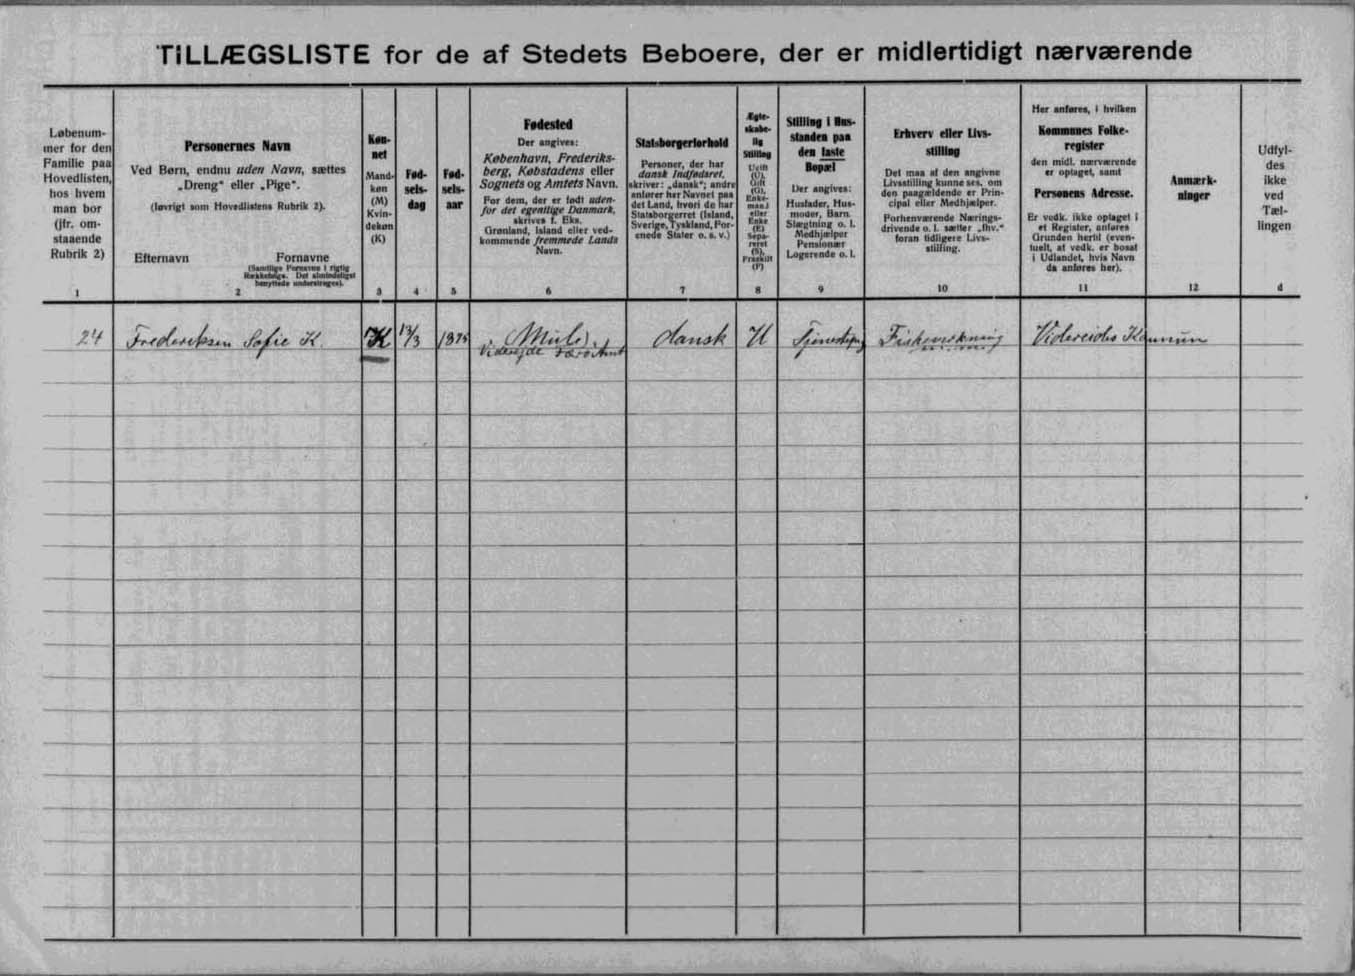 TILLÆGSLISTE for de af Stedets Beboere, der er midlertidigt nærværende
Løbenum-
mer for den
Familie paa
Hovedlisten,
hos hvem
man bor
(jfr. om-
staaende
Rubrik 2)
1
Personernes Navn
Ved Børn, endnu uden Navn, sættes
„Dreng“ eller „Pige“.
(Iøvrigt som Hovedlistens Rubrik 2).
Efternavn Fornavne
(Samtlige Fornavne i rigtig
Rækkefølge. Det almindeligst
benyttede understreges).
2
Køn-
net
Mand-
køn
(M)
Kvin-
dekøn
(K)
3
Fød-
sels-
dag
4
Fød-
sels-
aar
5
Fødested
Der angives:
København, Frederiks-
berg, Købstadens eller
Sognets og Amtets Navn.
For dem, der er født uden-
for det egentlige Danmark,
skrives f. Eks.
Grønland, Island eller ved-
kommende fremmede Lands
Navn.
6
Statsborgerforhold
Personer, der har
dansk Indfødsret,
skriver: „dansk“; andre
anfører her Navnet paa
det Land, hvori de har
Statsborgerret (Island,
Sverige, Tyskland, For-
enede Stater o. s. v.)
7
Ægte-
skabe-
lig
Stilling
Ugift
(U),
Gift
(G),
Enke-
mand
eller
Enke
(E)
Sepa-
reret
(S),
Fraskilt
(F)
8
Stilling i Hus-
standen paa
den faste
Bopæl
Der angives:
Husfader, Hus-
moder, Barn,
Slægtning o. l.
Medhjælper
Pensionær
Logerende o. l.
9
Erhverv eller Livs-
stilling
Det maa af den angivne
Livsstilling kunne ses, om
den paagældende er Prin-
cipal eller Medhjælper.
Forhenværende Nærings-
drivende o. l. sætter „fhv.“
foran tidligere Livs-
stilling.
10
Her anføres, i hvilken
Kommunes Folke-
register
den midl. nærværende
er optaget, samt
Personens Adresse.
Er vedk. ikke optaget i
et Register, anføres
Grunden hertil (even-
tuelt, at vedk. er bosat
i Udlandet, hvis Navn
da anføres her).
11
Anmærk-
ninger
12
Udfyl-
des
ikke
ved
Tæl-
lingen
d
24 Frederiksen Sofie K. K 13/3 1875 (Mule) dansk U Fiskevirkning Videreides Komunun
Viderejde Færø Amt